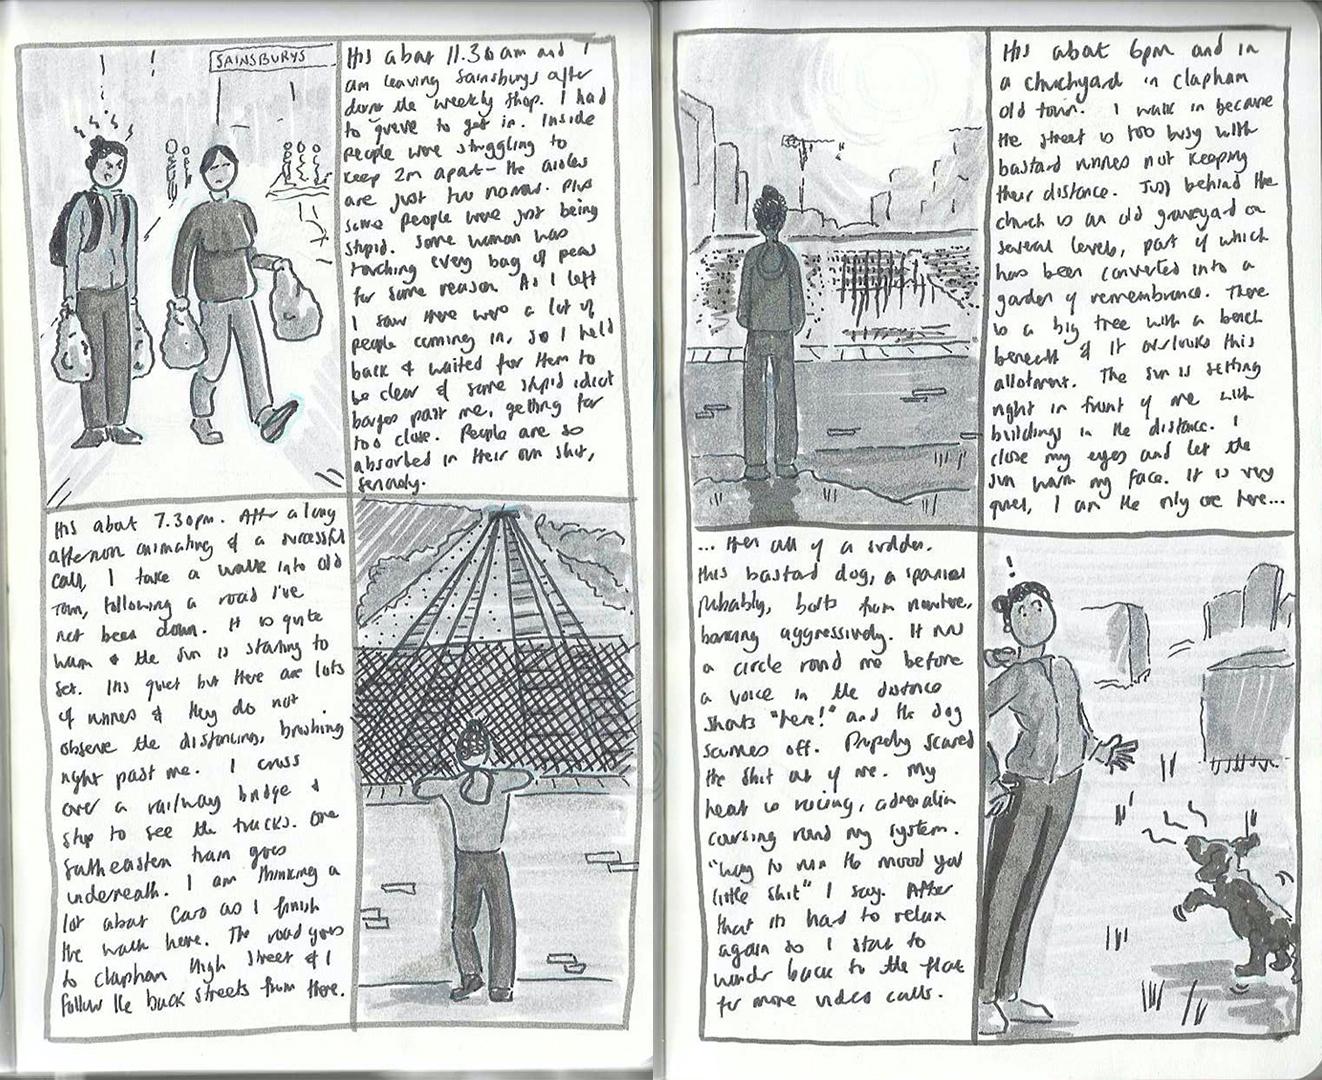 SAINSBURYS
Its about 11.30am and I
am leaving Sainsburys after
doing the weekly shop. I had
to queue to get in. Inside
people were struggling to
keep 2m apart - the aisles
are just too narrow. Plus
some people were just being
stupid. Some woman was
touching every bag of peas
for some reason. As I left
I saw there were a lot of
people coming in, so I held
back & waited for them to
be clear & some stupid idiot
barges past me, getting far
too close. People are so
absorbed in their own shit,
seriously.
Its about 7.30pm. After a long
afternoon animating & a successful
call, I take a walk into old
town, following a road I've
not been down. It is quite
warm & the sun is starting to
set. Its quiet but there are lots
of runners & they do not
observe the distancing, brushing
right past me. I cross
over a railway bridge &
stop to see the tracks. One
Southeastern train goes
underneath. I am thinking a
lot about Caro as I finish
the walk here. The road goes
to Clapham High Street & I
follow the back streets from there.
Its about 6pm and in
a churchyard in Clapham
old town. I walk in because
the street is too busy with
bastard runners not keeping
their distance. Just behind the
church is an old graveyard on
several levels, part of which
has been converted into a
garden of remembrance. There
is a big tree with a bench
beneath & it overlooks this
allotment. The sun is setting
right in front of me with
buildings in the distance. I
close my eyes and let the
sun warm my face. It is very
quiet, I am the only one here...
... then all of a sudden,
this bastard dog, a spaniel
probably, bolts from nowhere,
barking aggressively. It runs
a circle round me before
a voice in the distance
shouts "here!" and the dog
scurries off. Properly scared
the shit out of me. My
heart is racing, adrenalin
coursing round my system.
"Way to ruin the mood you
little shit" I say. After
that its hard to relax
again so I start to
wander back to the flat
for more video calls.
!